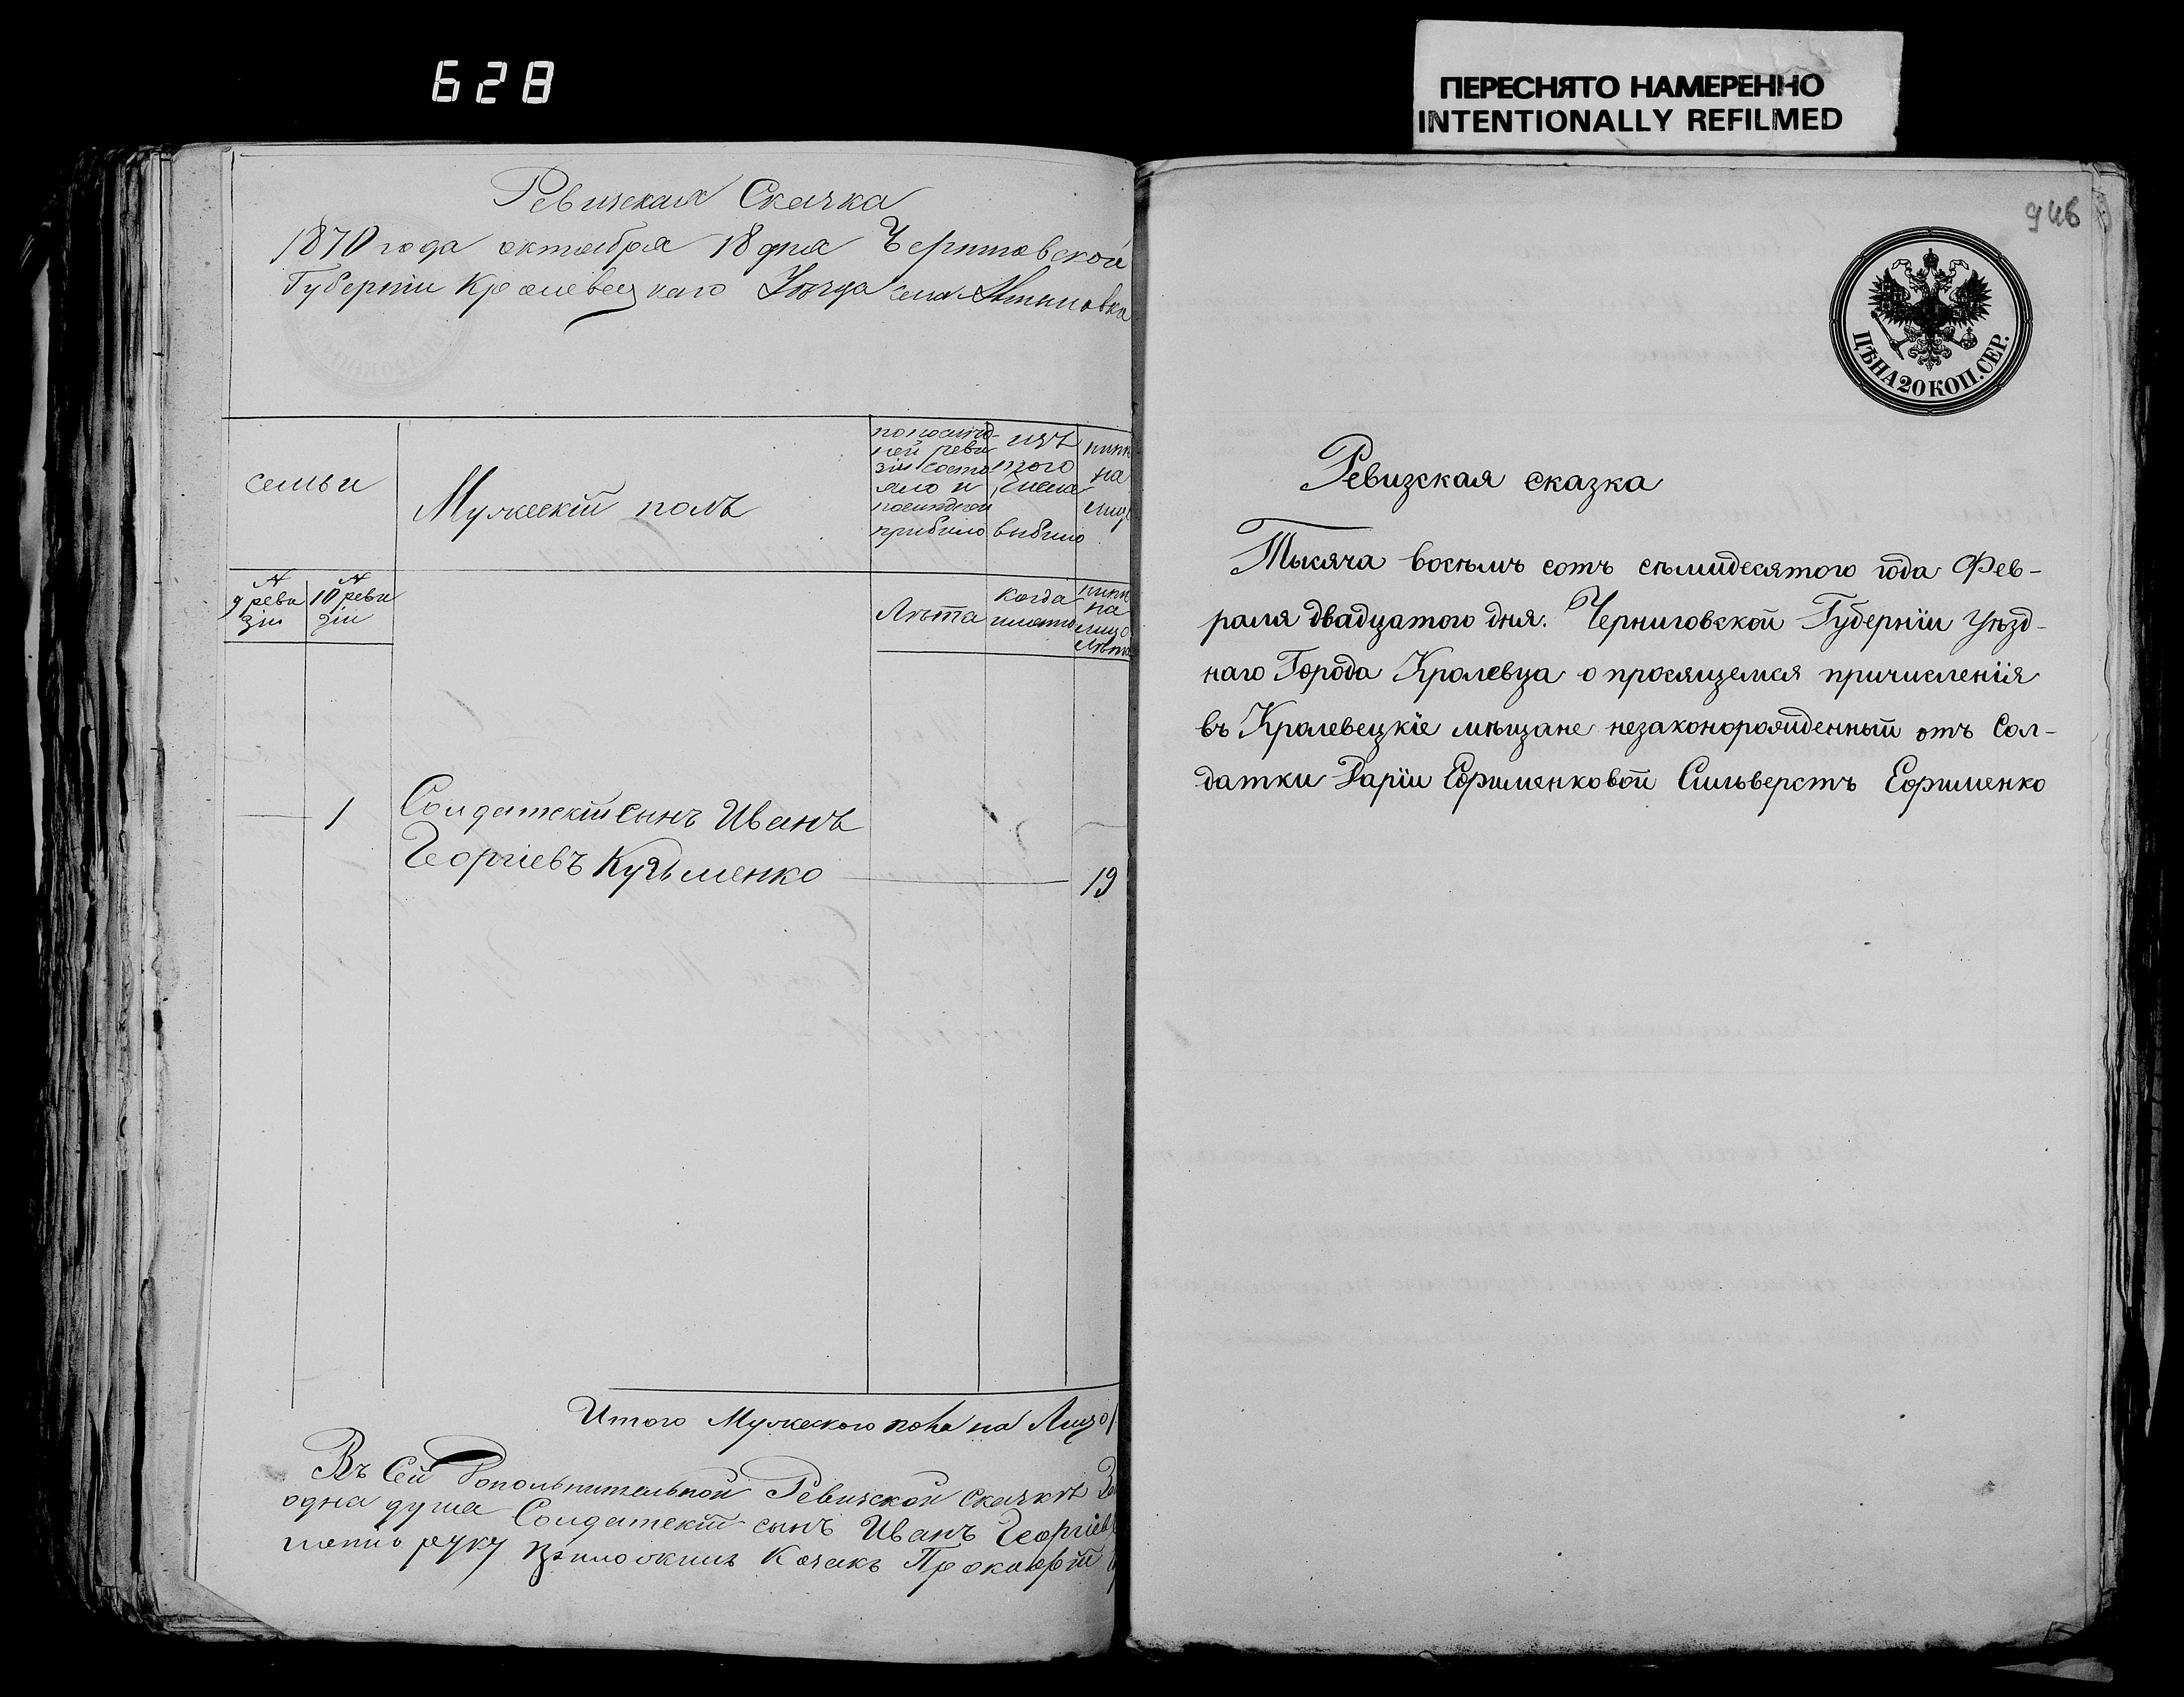 628
ПЕРЕСНЯТО НАМЕРЕННО
INTENTIONALLY REFILMED
Ревизская Сказка
1870 года октября 18 дня Черниговской
Губернии Кролевецкаго Уѣзда села
семьи
Мужескій полъ
по послѣд-
ней реви
зіи состо
яло и
прибыло
изъ
того
числа
выбыло
нынѣ
на
лицо
№
9 реви
зіи
№
10 реви
зіи
Лѣта
когда
именно
нынѣ
на
лицо
лѣта
1
Солдатскій сынъ Иванъ
Георгіевъ Кузьменко
19
Итого Мужескаго пола на Лицо 1
Въ Сей Дополнительной Ревизской сказкѣ
одна душа Солдатскій сынъ Иванъ Георгіев
руку Козакъ Прокофій
946
ЦѢНА 20 КОП. СЕР.
Ревизская сказка
Тысяча восѣмъ сотъ сѣмидесятого года Фев-
раля двадцатого дня. Черниговской Губерніи уѣзд-
наго Города Кролевца о просящемся причисленія
въ Кролевецкіе мѣщане незаконорожденный отъ Сол-
датки Даріи Ефименковой Сильверстъ Ефименко